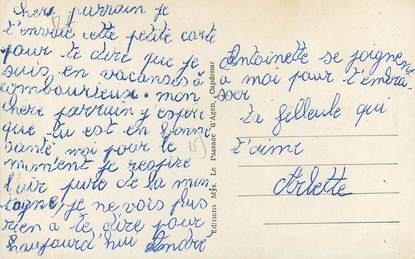 chere parrain je
t'envoie cette petite carte
pour te dire que je
suis en vacances à
combourieux. mon
chere parrain j'espere
que tu est en bonne
santé moi pour le
moment je respire
l'air pure de la mon
tagne, je ne vois plus
rien a te dire pour
haujourd'hui André
Antoinette se joigne
a moi pour t'embra
sser
ta filleule qui
t'aime
Arlette
Editions Mys. Le Passage d'Agen, Capdemar